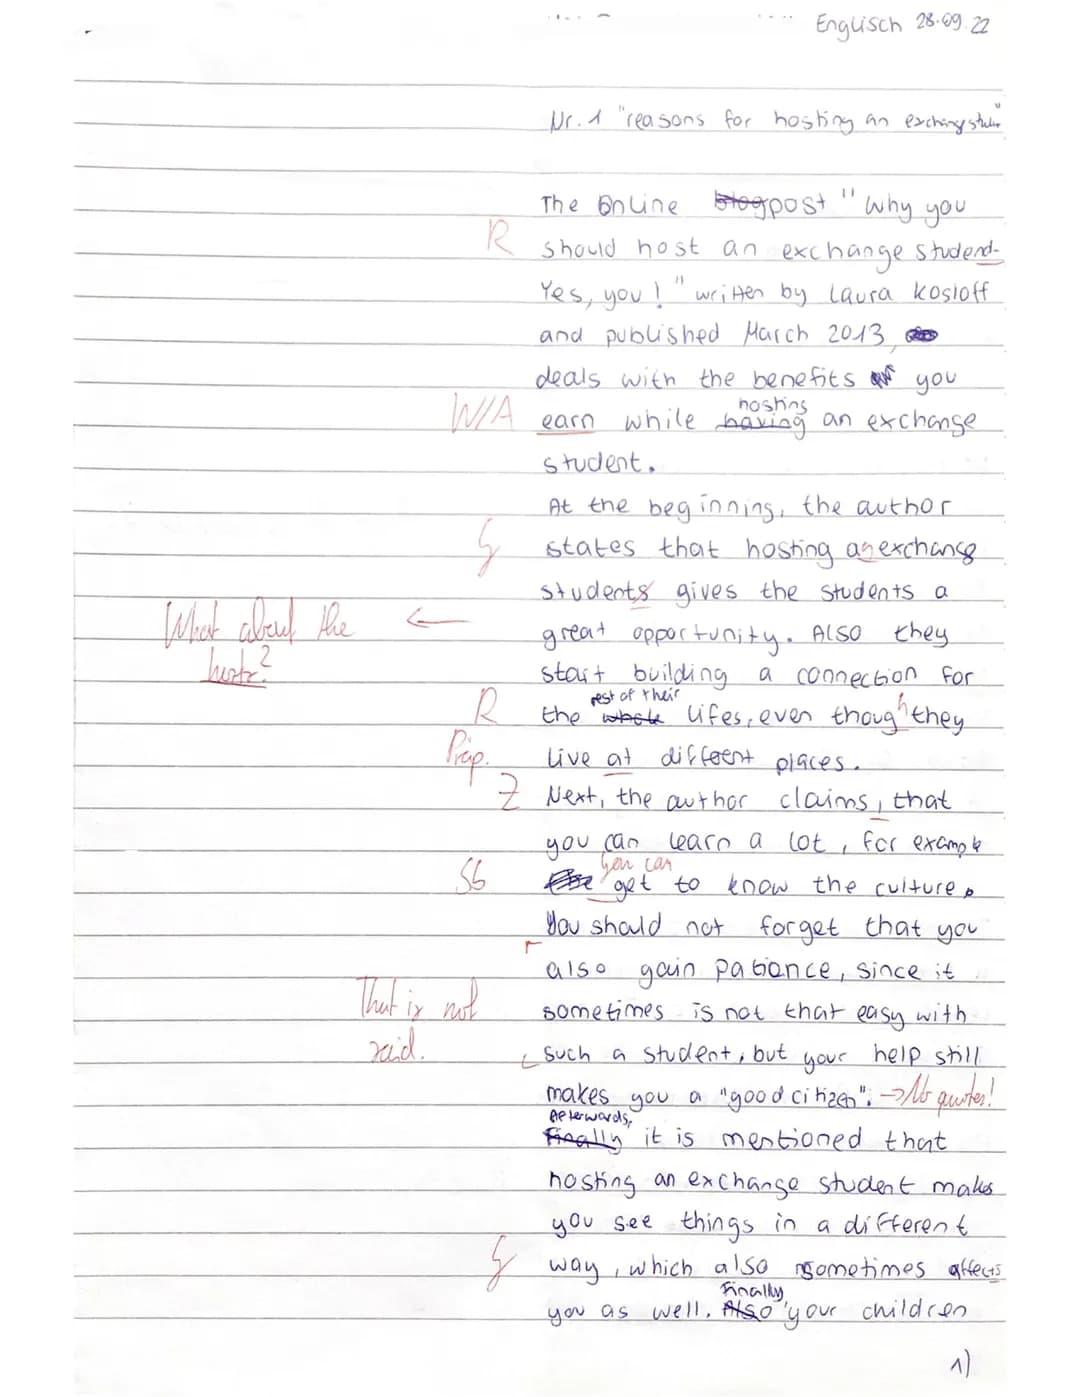 Englisch 28.09.22
Nr. 1 "reasons for hosting an
The Online blogpost "Why you
R should host an exchange studend-
Yes, you!" written by Laura Kosloff
and published March 2013,
deals with the benefits you
hosting
W/A earn while having an exchange
student.
At the beginning, the author
states that hosting an exchange
students gives the students a
What about the
great opportunity. Also they
hosts?
start building a connection for
rest of their
R the whole lifes, even though they
Präp. live at different places.
Z Next, the author claims, that
you can learn a lot, for example
you can
Sb get to know the culture.
You should not forget that you
also gain patiance, since it
That is not sometimes is not that easy with
said. such a student, but your help still
makes you a "good citizen". → No quotes!
Afterwards,
Finally it is mentioned that
hosting an exchange student makes
you see things in a different
way, which also sometimes affects
Finally,
you as well. Also your children
1)